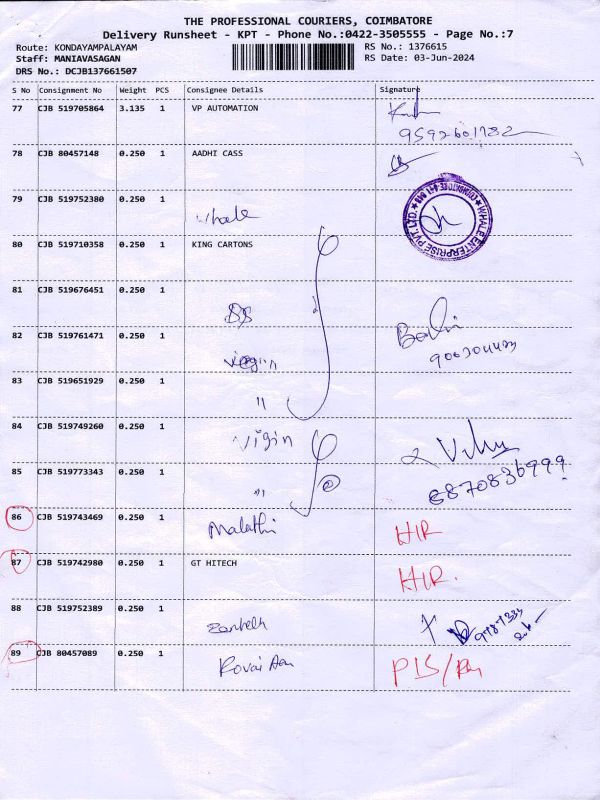 THE PROFESSIONAL COURIERS, COIMBATORE
Delivery Runsheet - KPT - Phone No.:0422-3505555 - Page No.:7
Route: KONDAYAMPALAYAM
RS No.: 1376615
Staff: MANIAVASAGAN
RS Date: 03-Jun-2024
DRS No.: DCJB137661507
S No Consignment No Weight PCS Consignee Details Signature
77 CJB 519705864 3.135 1 VP AUTOMATION
78 CJB 80457148 0.250 1 AADHI CASS
79 CJB 519752380 0.250 1
Whale
WHALE ENTERPRISE PVT.LTD.
80 CJB 519710358 0.250 1 KING CARTONS
81 CJB 519676451 0.250 1
SS
82 CJB 519761471 0.250 1
Virgin
83 CJB 519651929 0.250 1
"
84 CJB 519749260 0.250 1
Vigin
85 CJB 519773343 0.250 1
"
6870836999
86 CJB 519743469 0.250 1
Malathi HIR
87 CJB 519742980 0.250 1 GT HITECH
HIR.
88 CJB 519752389 0.250 1
89 CJB 80457089 0.250 1
Kovai